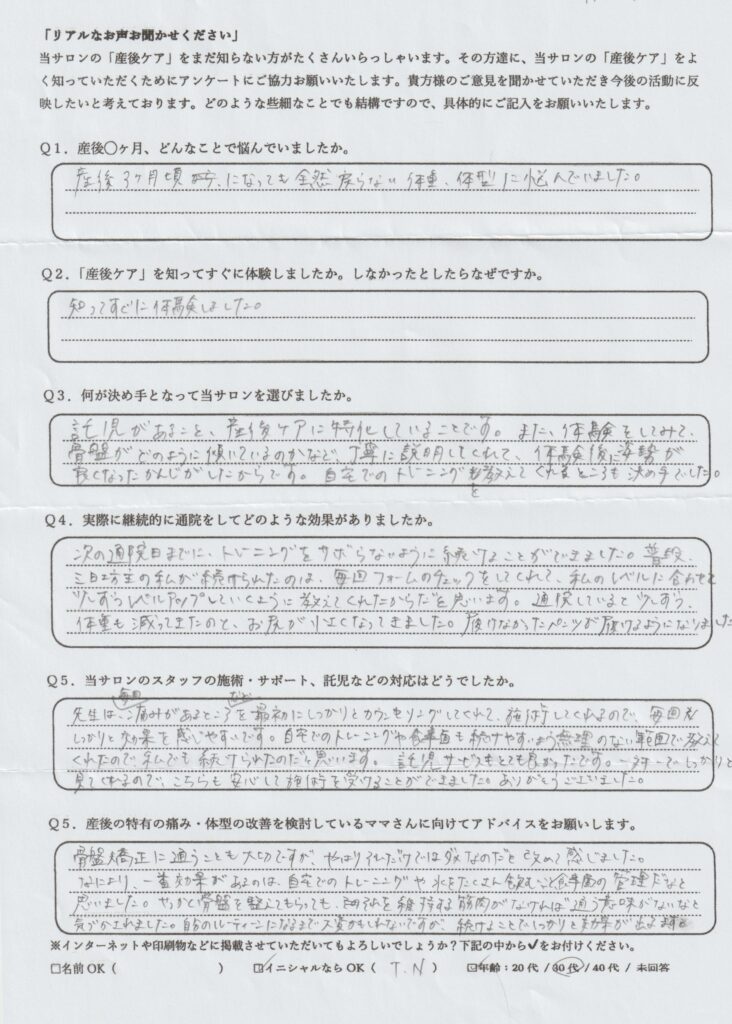 「リアルなお声お聞かせください」
当サロンの「産後ケア」をまだ知らない方がたくさんいらっしゃいます。その方達に、当サロンの「産後ケア」をよ
く知っていただくためにアンケートにご協力お願いいたします。貴方様のご意見を聞かせていただき今後の活動に反
映したいと考えております。どのような些細なことでも結構ですので、具体的にご記入をお願いいたします。
Q1．産後◯ヶ月、どんなことで悩んでいましたか。
産後3ヶ月頃になっても全然戻らない体重、体型に悩んでいました。
Q2．「産後ケア」を知ってすぐに体験しましたか。しなかったとしたらなぜですか。
知ってすぐに体験しました。
Q3．何が決め手となって当サロンを選びましたか。
託児があること、産後ケアに特化していることです。また、体験をしてみて、
骨盤がどのように傾いているのかなど、丁寧に説明してくれて、体験後に姿勢が
良くなったかんじがしたからです。自宅でのトレーニングも教えてくれるところも決め手でした。
Q4．実際に継続的に通院をしてどのような効果がありましたか。
次の通院日までに、トレーニングをサボらないように続けることができました。普段、
三日坊主の私が続けられたのは、毎回フォームのチェックをしてくれて、私のレベルに合わせて
少しずつレベルアップしていくように教えてくれたからだと思います。通院していると少しずつ、
体重も減ってきたのと、お尻が小さくなってきました。履けなかったパンツが履けるようになりました
Q5．当サロンのスタッフの施術・サポート、託児などの対応はどうでしたか。
先生は、毎回痛みがあるところなどを最初にしっかりとカウンセリングしてくれて、施術してくれるので、毎回
しっかりと効果を感じやすいです。自宅でのトレーニングや食事面も続けやすいよう無理のない範囲で教えて
くれたので、私でも続けられたのだと思います。託児サービスもとても良かったです。一対一でしっかりと
見てくれるので、こちらも安心して施術を受けることができました。ありがとうございました。
Q5．産後の特有の痛み・体型の改善を検討しているママさんに向けてアドバイスをお願いします。
骨盤矯正に通うことも大切ですが、やはりそれだけではダメなのだと改めて感じました。
なにより、一番効果があるのは、自宅でのトレーニングや水をたくさん飲むこと、食事面の管理だなと
思いました。せっかく骨盤を整えてもらっても、それを維持する筋肉がなければ通う意味がないなと
気づかされました。自分のルーティーンになるまで大変かもしれないですが、続けることでしっかりと効果が出ます
※インターネットや印刷物などに掲載させていただいてもよろしいでしょうか？下記の中から✓をお付けください。
□名前OK（　　　　　　　） ☑イニシャルならOK（ T.N ） ☑年齢：20代 / 30代 / 40代 / 未回答